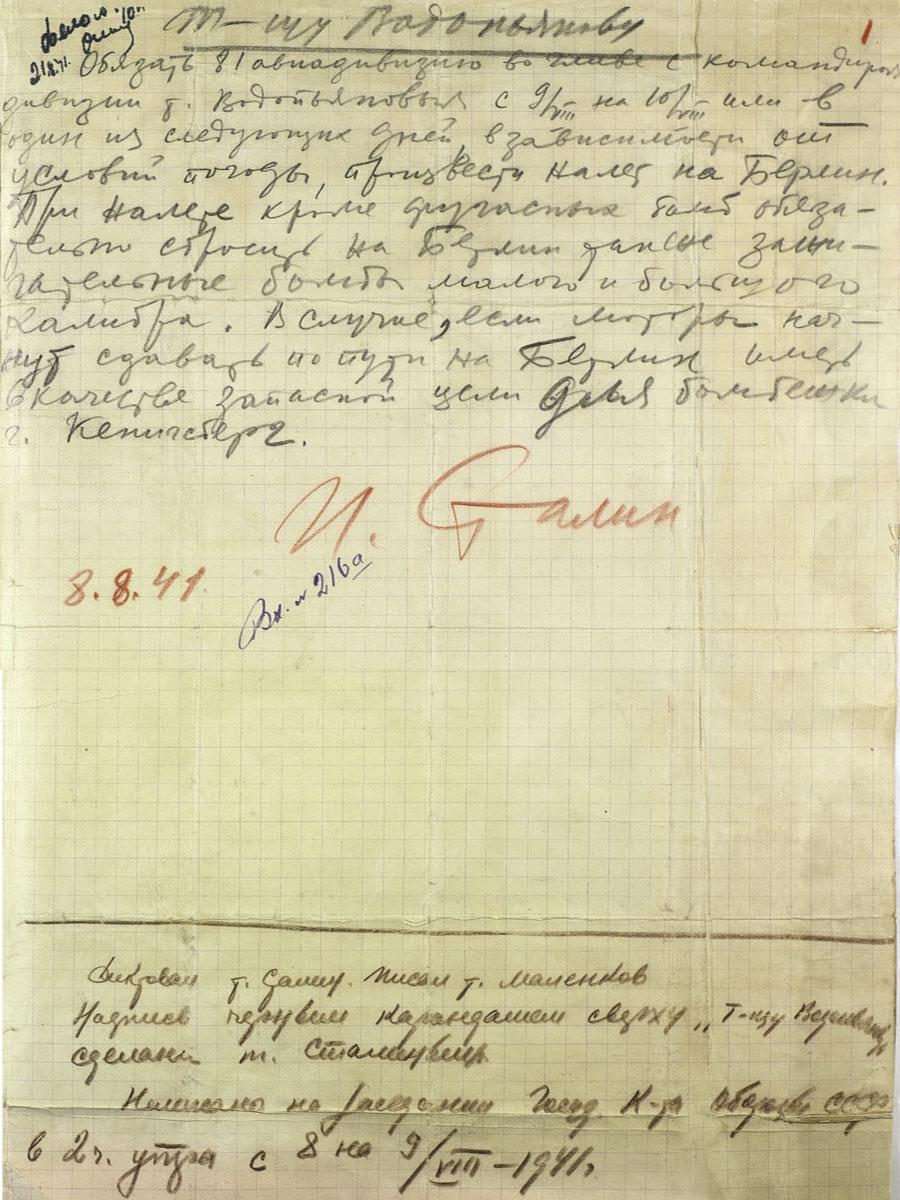 Т-щу Водопьянову
1
Обязать 81 авиадивизию во главе с командиром
дивизии т. Водопьяновым с 9/VIII на 10/VIII или в
один из следующих дней, в зависимости от
условий погоды, произвести налет на Берлин.
При налете кроме фугасных бомб обяза-
тельно сбросить на Берлин также зажи-
гательные бомбы малого и большого
калибра. В случае, если моторы нач-
нут сдавать по пути на Берлин иметь
в качестве запасной цели для бомбежки
г. Кенигсберг.
И. Сталин
8.8.41
Вх. № 216а
Диктовал т. Сталин. Писал т. Маленков
Надпись черным карандашом сверху „Т-щу Водопьянову
сделана т. Сталиным
Написано на заседании Госуд. К-та Обороны СССР
в 2 ч. утра с 8 на 9/VIII-1941г.